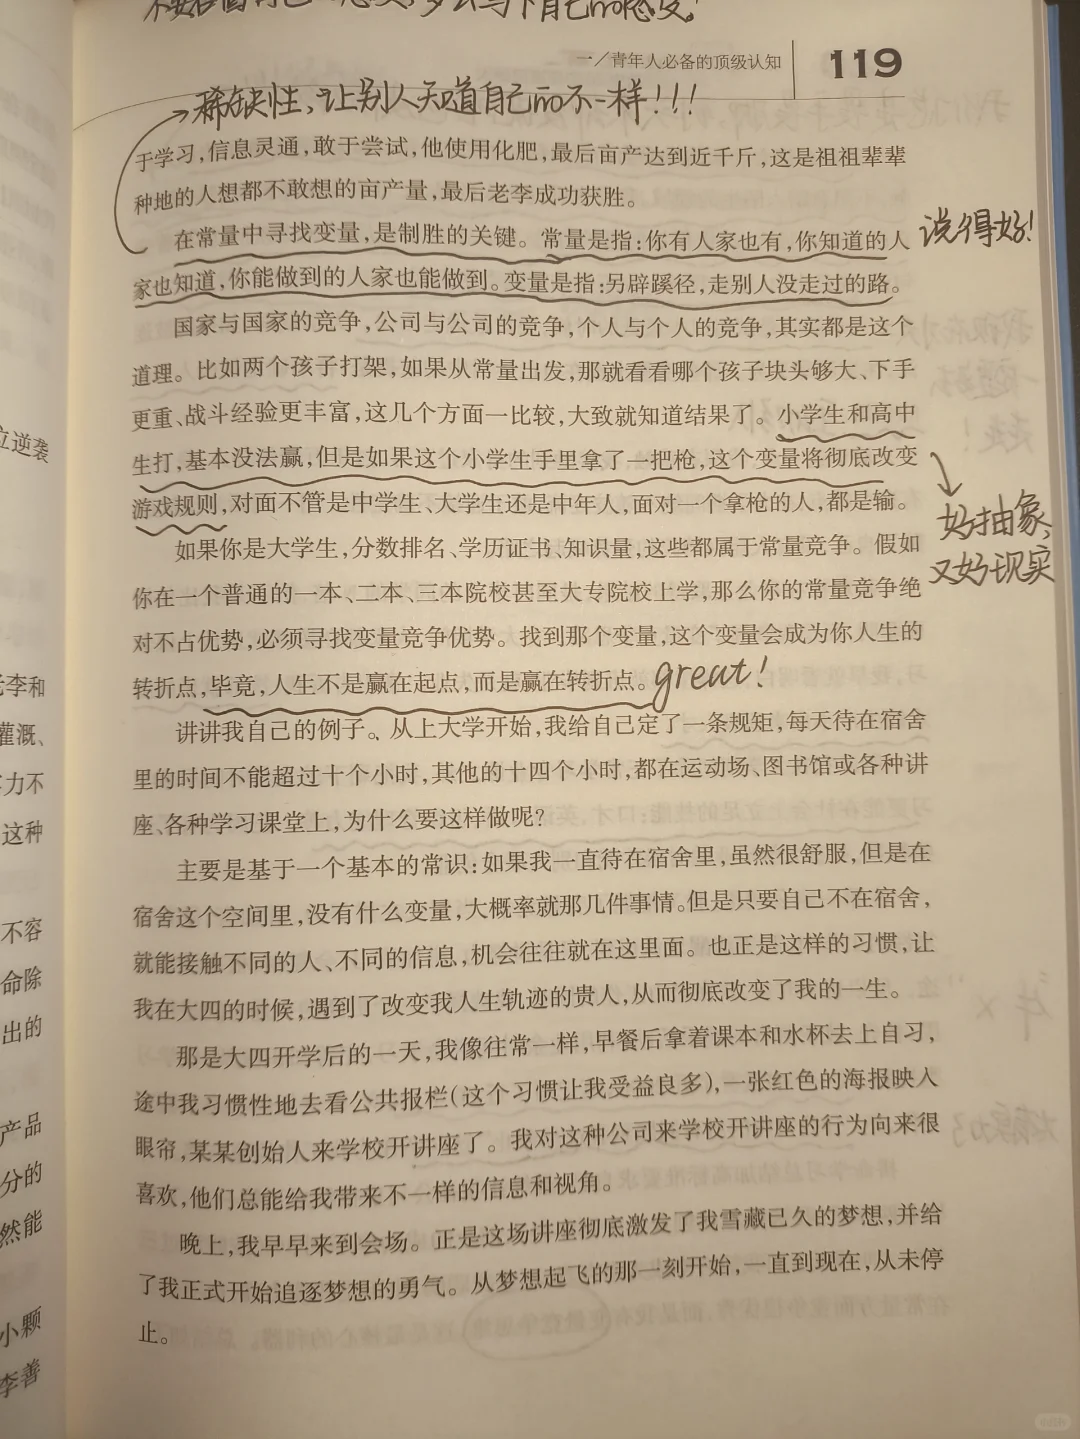 一/青年人必备的顶级认知
119
稀缺性、让别人知道自己的不一样!!!
于学习,信息灵通,敢于尝试,他使用化肥,最后亩产达到近千斤,这是祖祖辈辈
种地的人想都不敢想的亩产量,最后老李成功获胜。
在常量中寻找变量,是制胜的关键。常量是指:你有人家也有,你知道的人
说得好!
家也知道,你能做到的人家也能做到。变量是指:另辟蹊径,走别人没走过的路。
国家与国家的竞争,公司与公司的竞争,个人与个人的竞争,其实都是这个
道理。比如两个孩子打架,如果从常量出发,那就看看哪个孩子块头够大、下手
更重、战斗经验更丰富,这几个方面一比较,大致就知道结果了。小学生和高中
生打,基本没法赢,但是如果这个小学生手里拿了一把枪,这个变量将彻底改变
游戏规则,对面不管是中学生、大学生还是中年人,面对一个拿枪的人,都是输。
好抽象,
又好现实
如果你是大学生,分数排名、学历证书、知识量,这些都属于常量竞争。假如
你在一个普通的一本、二本、三本院校甚至大专院校上学,那么你的常量竞争绝
对不占优势,必须寻找变量竞争优势。找到那个变量,这个变量会成为你人生的
转折点,毕竟,人生不是赢在起点,而是赢在转折点。great!
讲讲我自己的例子。从上大学开始,我给自己定了一条规矩,每天待在宿舍
里的时间不能超过十个小时,其他的十四个小时,都在运动场、图书馆或各种讲
座、各种学习课堂上,为什么要这样做呢?
主要是基于一个基本的常识:如果我一直待在宿舍里,虽然很舒服,但是在
宿舍这个空间里,没有什么变量,大概率就那几件事情。但是只要自己不在宿舍,
就能接触不同的人、不同的信息,机会往往就在这里面。也正是这样的习惯,让
我在大四的时候,遇到了改变我人生轨迹的贵人,从而彻底改变了我的一生。
那是大四开学后的一天,我像往常一样,早餐后拿着课本和水杯去上自习,
途中我习惯性地去看公共报栏(这个习惯让我受益良多),一张红色的海报映入
眼帘,某某创始人来学校开讲座了。我对这种公司来学校开讲座的行为向来很
喜欢,他们总能给我带来不一样的信息和视角。
晚上,我早早来到会场。正是这场讲座彻底激发了我雪藏已久的梦想,并给
了我正式开始追逐梦想的勇气。从梦想起飞的那一刻开始,一直到现在,从未停
止。
立逆袭
老李和
灌溉、
力不
这种
不容
命除
出的
产品
分的
然能
小颗
李善